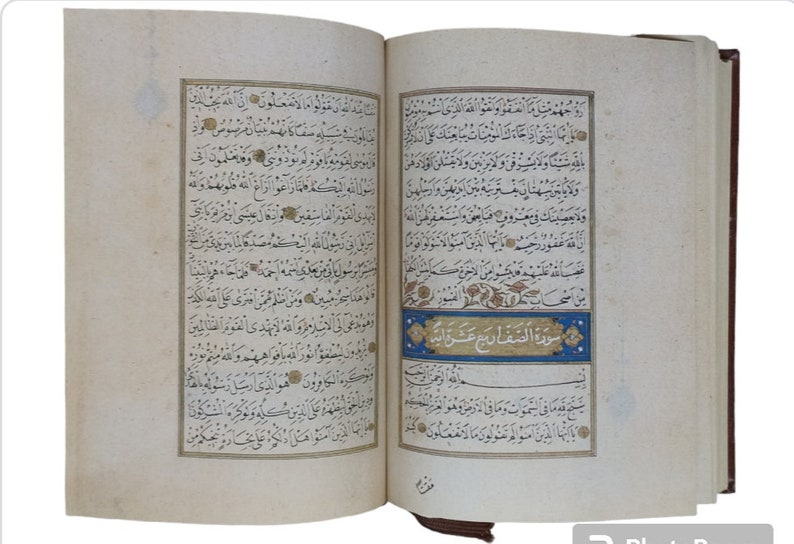 زواجهم مثل ما انفقوا واتقوا الله الذى انتم به مؤمنون
يا ايها النبى اذا جاءك المؤمنات يبايعنك على ان لا يشركن
بالله شيئا ولا يسرقن ولا يزنين ولا يقتلن اولادهن
ولا ياتين ببهتان يفترينه بين ايديهن وارجلهن
ولا يعصينك فى معروف فبايعهن واستغفر لهن الله
ان الله غفور رحيم يا ايها الذين امنوا لا تتولوا قوما
غضب الله عليهم قد يئسوا من الاخرة كما يئس الكفار
من اصحاب القبور
سورة الصف اربع عشرة اية
بسم الله الرحمن الرحيم
سبح لله ما فى السموات وما فى الارض وهو العزيز الحكيم
يا ايها الذين امنوا لم تقولون ما لا تفعلون كبر
مقتا
مقتا عند الله ان تقولوا ما لا تفعلون ان الله يحب الذين
يقاتلون فى سبيله صفا كانهم بنيان مرصوص واذ
قال موسى لقومه يا قوم لم تؤذوننى وقد تعلمون انى
رسول الله اليكم فلما زاغوا ازاغ الله قلوبهم والله
لا يهدى القوم الفاسقين واذ قال عيسى ابن مريم يا بنى
اسرائيل انى رسول الله اليكم مصدقا لما بين يدى من التورية
ومبشرا برسول ياتى من بعدى اسمه احمد فلما جاءهم بالبينات
قالوا هذا سحر مبين ومن اظلم ممن افترى على الله الكذب
وهو يدعى الى الاسلام والله لا يهدى القوم الظالمين
يريدون ليطفؤا نور الله بافواههم والله متم نوره
ولو كره الكافرون هو الذى ارسل رسوله بالهدى
ودين الحق ليظهره على الدين كله ولو كره المشركون
يا ايها الذين امنوا هل ادلكم على تجارة تنجيكم من